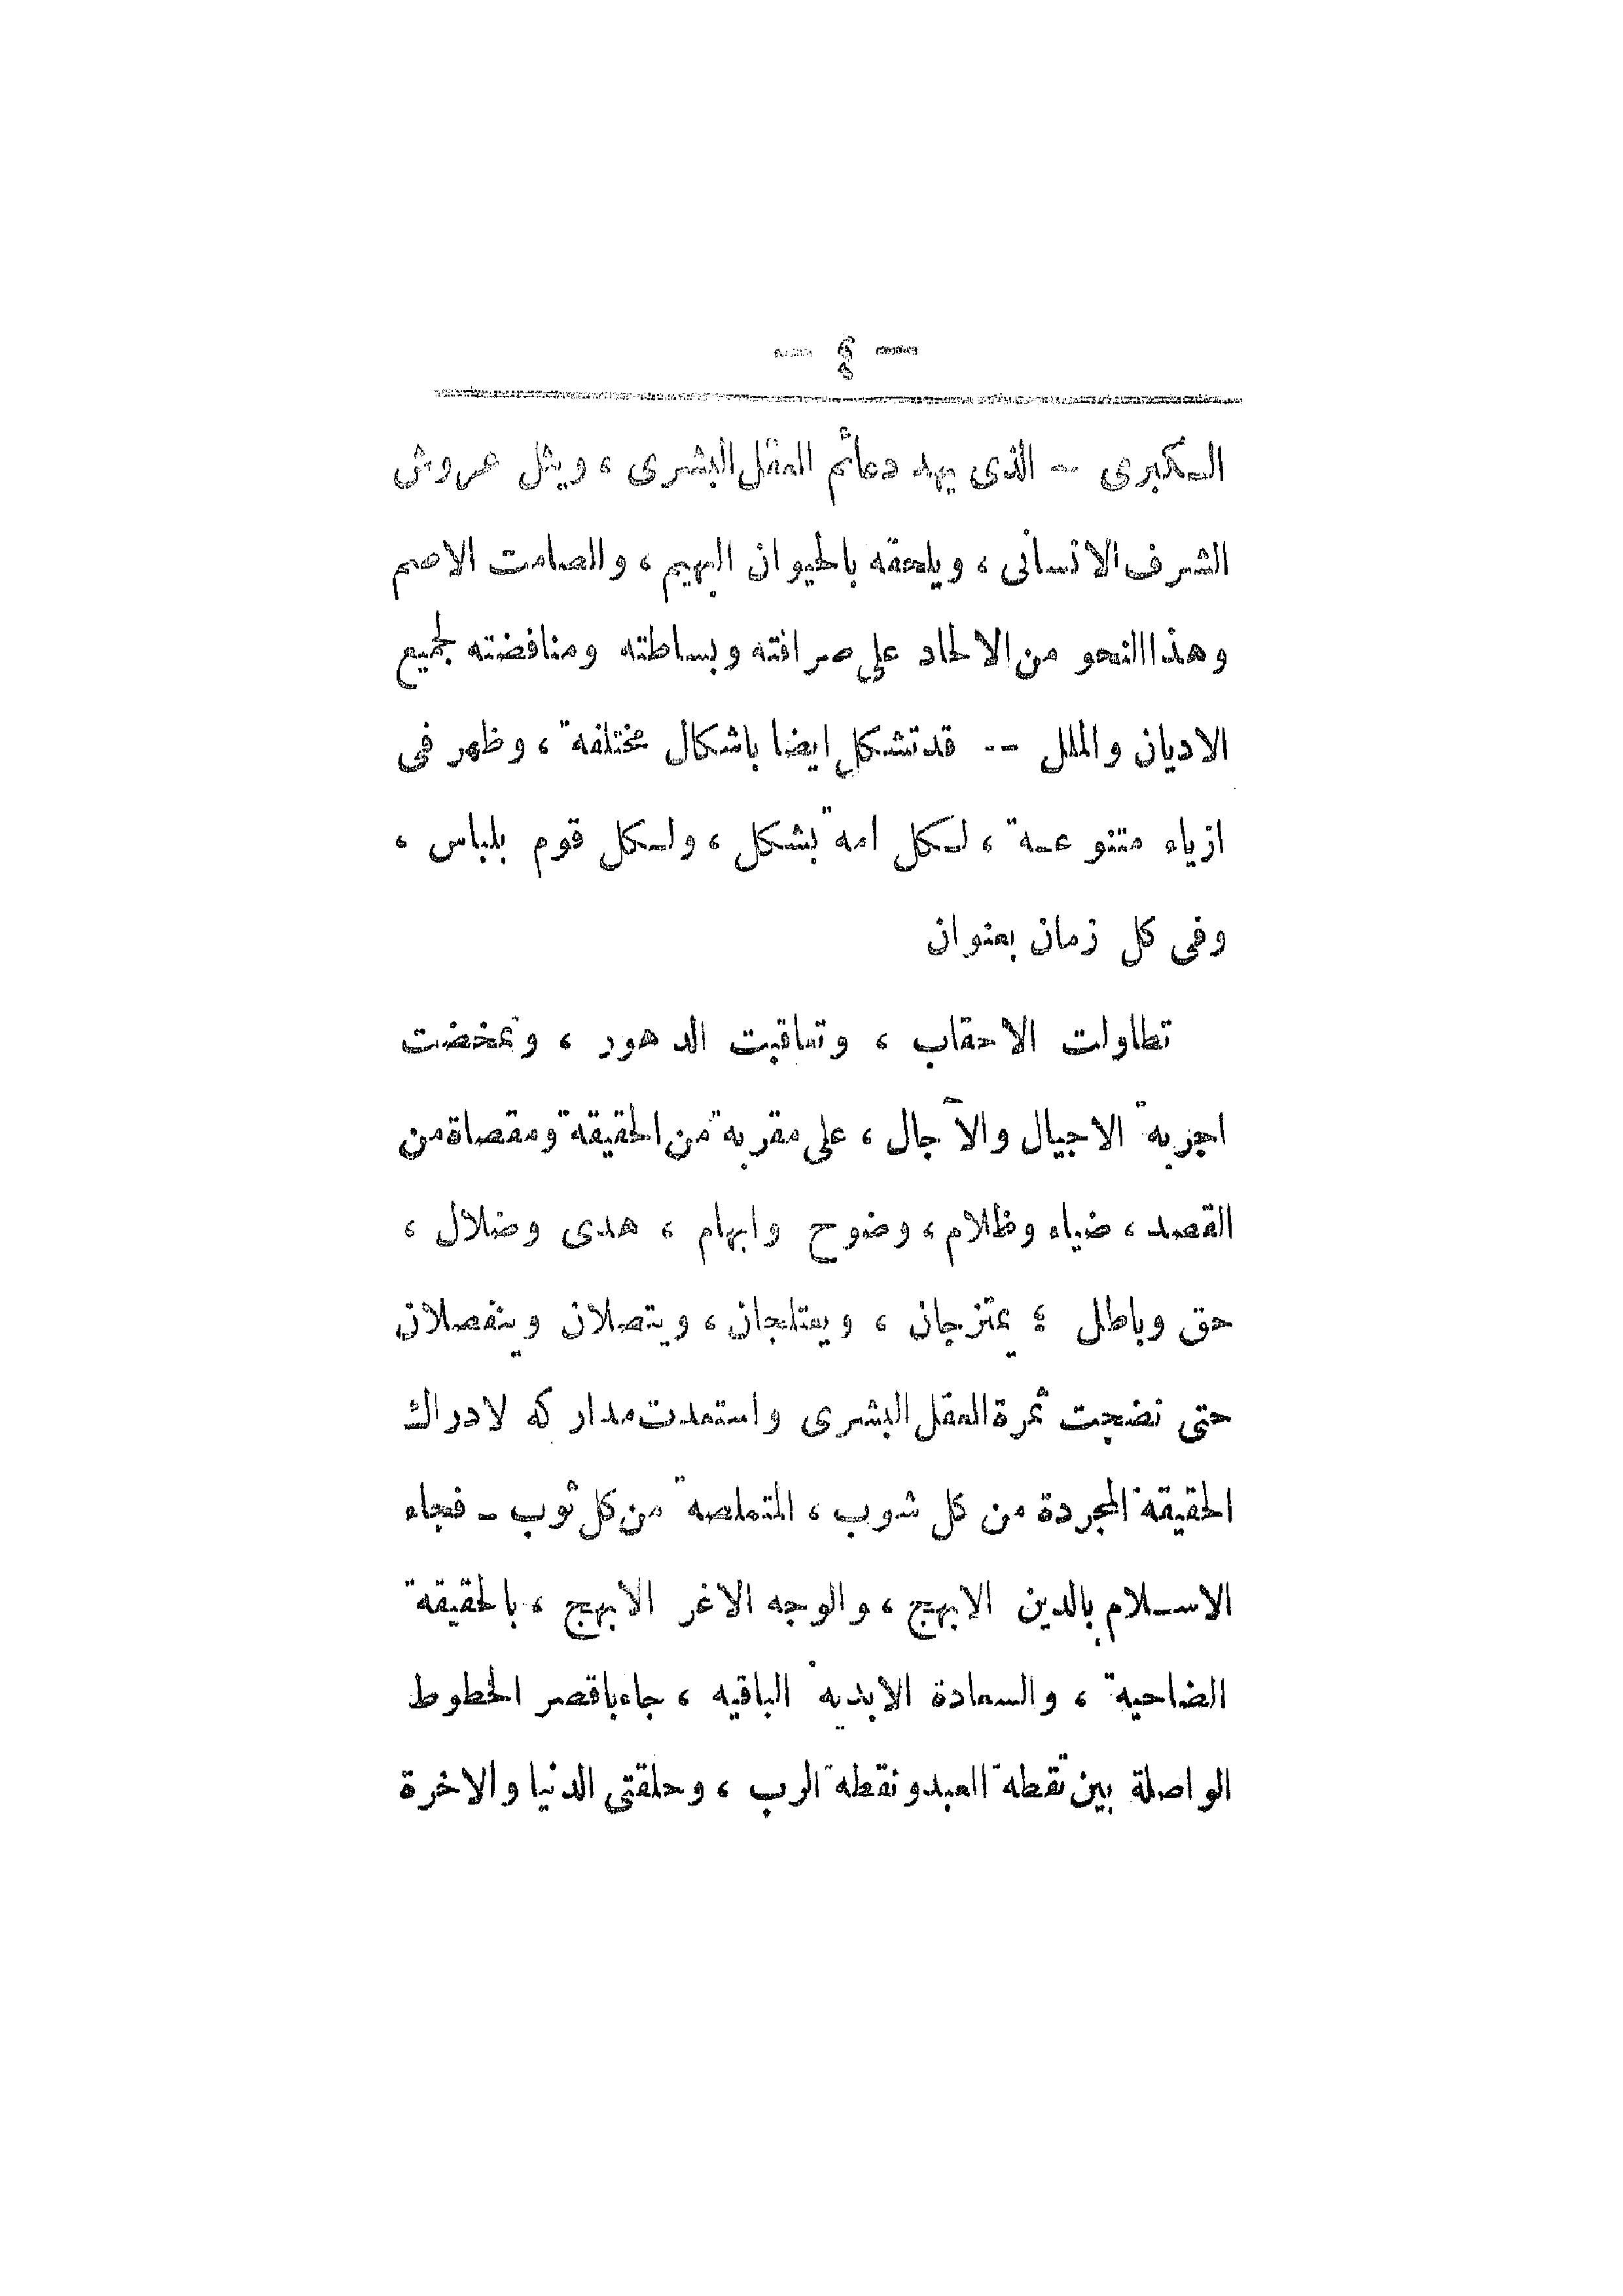 — ٤ —
الكبرى — الذى يهد دعائم العقل البشرى ، ويثل عروش
الشرف الانسانى ، ويلحقه بالحيوان البهيم ، والصامت الاصم
وهذا النحو من الالحاد على صرافته وبساطته ومنافضته لجميع
الاديان والملل -- قد تشكل ايضا باشكال مختلفة ، وظهر فى
ازياء متنوعـة ، لكل امة بشكل ، ولكل قوم بلباس ،
وفى كل زمان بعنوان
تطاولت الاحقاب ، وتعاقبت الدهور ، وتمخضت
اجربة الاجيال والآجال ، على مقربة من الحقيقة ومقصاة من
القصد ، ضياء وظلام ، وضوح وابهام ، هدى وضلال ،
حق وباطل ؛ يمتزجان ، ويعتلجان ، ويتصلان وينفصلان
حتى نضجت ثمرة العقل البشرى واستعدت مداركه لادراك
الحقيقة المجردة من كل شوب ، المتملصة من كل ثوب ـ فجاء
الاسـلام بالدين الابهج ، والوجه الاغر الابهج ، بالحقيقة
الضاحية ، والسعادة الابدية الباقيه ، جاء باقصر الخطوط
الواصلة بين نقطة العبد ونقطة الرب ، وحلقتى الدنيا والاخرة